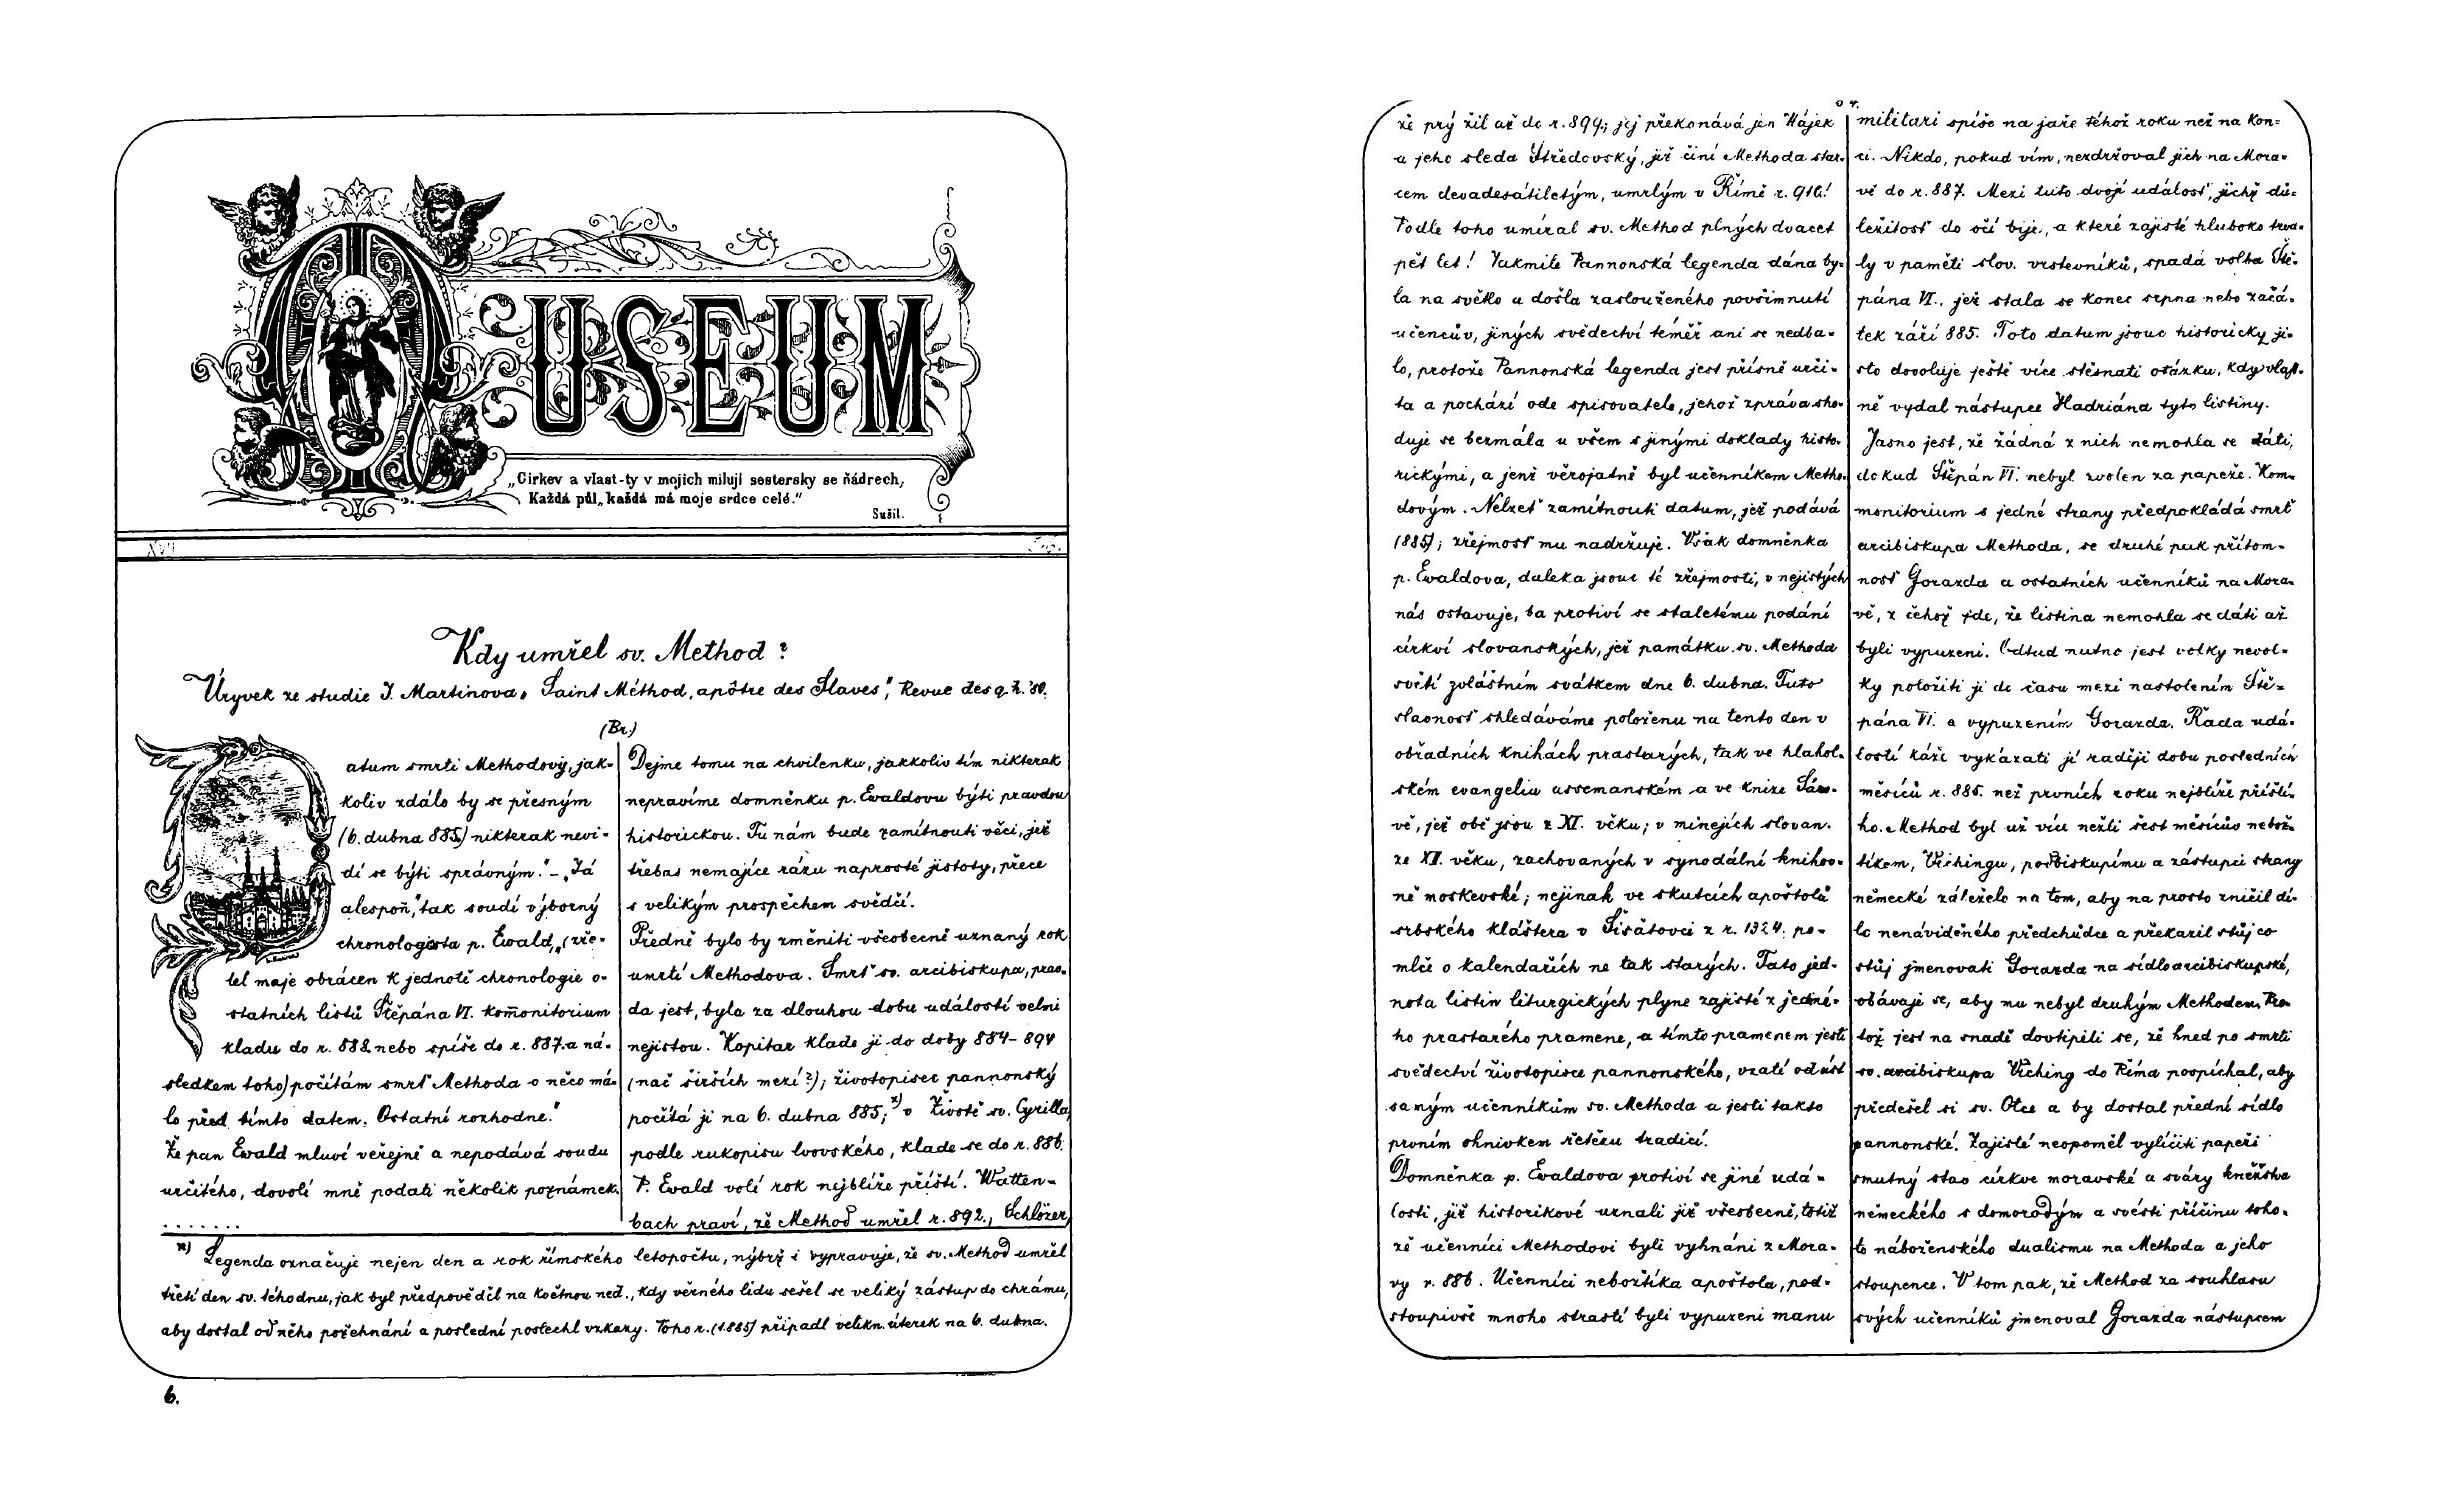 MUSEUM
„Církev a vlast-ty v mojich milují sestersky se ňádrech,
Každá půl, každá má moje srdce celé.“
Sušil.
XVII
Kdy umřel sv. Method?
Úryvek ze studie J. Martinova „Saint Méthod, apôtre des Slaves", Revue des q. h. '80.
(Br.)
Datum smrti Methodovy, jak-
koliv zdálo by se přesným
(6. dubna 885.) nikterak nevi-
dí se býti správným." – „Já
alespoň," tak soudí výborný
chronologista p. Ewald, „(zře-
tel maje obrácen k jednotě chronologie o-
statních listů Štěpána VI. kommonitorium
kladu do r. 888. nebo spíše do r. 887. a ná-
sledkem toho) počítám smrť Methoda o něco má-
lo před tímto datem. Ostatní rozhodne."
Že pan Ewald mluví veřejně a nepodává soudu
určitého, dovolí mně podati několik poznámek.
.......
Dejme tomu na chvilenku, jakkoliv tím nikterak
nepravíme domněnku p. Ewaldovu býti pravdou
historickou. Tu nám bude zamítnouti věci, jež
třebas nemajíce rázu naprosté jistoty, přece
s velikým prospěchem svědčí.
Předně bylo by změniti všeobecně uznaný rok
umrtí Methodova. Smrť sv. arcibiskupa, prav-
da jest, byla za dlouhou dobu událostí velmi
nejistou. Kopitar klade ji do doby 884–894
(nač širších mezí?); životopisec pannonský
počítá ji na 6. dubna 885; x) v Životě sv. Cyrilla,
podle rukopisu lvovského, klade se do r. 886.
P. Ewald volí rok nejblíže příští. Watten-
bach praví, že Method umřel r. 892., Schlözer,
x) Legenda označuje nejen den a rok římského letopočtu, nýbrž i vypravuje, že sv. Method umřel
třetí den sv. téhodnu, jak byl předpověděl na květnou ned., kdy věrného lidu sešel se veliký zástup do chrámu,
aby dostal od něho požehnání a poslední poslechl vzkazy. Toho r. (1. 885) připadl velikn. úterek na 6. dubna.
6.
že prý žil až do r. 899.; jej překonává jen Hájek
a jeho sleda Středovský, jiř činí Methoda star-
cem devadesátiletým, umrlým v Římě r. 910!
Podle toho umíral sv. Method plných dvacet
pět let! Jakmile Pannonská legenda dána by-
la na světlo a došla zaslouženého povšimnutí
učencův, jiných svědectví téměř ani se nedba-
lo, protože Pannonská legenda jest přísně urči-
ta a pochází ode spisovatele, jehož zpráva sho-
duje se bezmála u všem s jinými doklady histo-
rickými, a jenž věrojatně byl učenníkem Metho-
dovým. Nelzeť zamítnouti datum, jež podává
(885); zřejmosť mu nadržuje. Však domněnka
p. Ewaldova, daleka jsouc té zřejmosti, v nejistých
nás ostavuje, ba protiví se staletému podání
církví slovanských, jež památku sv. Methoda
světí zvláštním svátkem dne 6. dubna. Tuto
slavnosť shledáváme položenu na tento den v
obřadních knihách prastarých, tak ve hlahol-
ském evangeliu assemanském a ve knize Sáw-
vě, jež obě jsou z XI. věku; v minejích slovan.
ze XII. věku, zachovaných v synodální knihov-
ně moskevské; nejinak ve skutcích apoštolů
srbského kláštera v Šišátovci z r. 1324. po-
mlče o kalendářích ne tak starých. Tato jed-
nota listin liturgických plyne zajisté z jedné-
ho prastarého pramene, a tímto pramenem jesti
svědectví životopisce pannonského, vzatí od úst
samým učenníkům sv. Methoda a jesti takto
prvním ohnivkem řetězu tradicí.
Domněnka p. Ewaldova protiví se jiné udá-
losti, již historikové uznali již všeobecně, totiž
že učenníci Methodovi byli vyhnáni z Mora-
vy r. 886. Učenníci nebožtíka apoštola, pod-
stoupivše mnoho strastí byli vypuzeni manu
militari spíše na jaře téhož roku než na kon-
ci. Nikdo, pokud vím, nezdržoval jich na Mora-
vě do r. 887. Mezi tuto dvojí událosť, jichž dů-
ležitosť do očí bije, a které zajisté hluboko trva-
ly v paměti slov. vrstevníků, spadá volba Ště-
pána VI., jež stala se konec srpna nebo začá-
tek září 885. Toto datum jsouc historicky ji-
sto dovoluje ještě více stěsnati otázku, kdy vlast-
ně vydal nástupce Hadriána tyto listiny.
Jasno jest, že žádná z nich nemohla se státi,
dokud Štěpán VI. nebyl zvolen za papeže. Kom-
monitorium s jedné strany předpokládá smrť
arcibiskupa Methoda, se druhé pak přítom-
nosť Gorazda a ostatních učenníků na Mora-
vě, z čehož jde, že listina nemohla se dáti až
byli vypuzeni. Odtud nutno jest volky nevol-
ky položiti ji do času mezi nastolením Ště-
pána VI. a vypuzením Gorazda. Řada udá-
lostí káže vykázati jí raději dobu posledních
měsíců r. 885. než prvních roku nejblíže příští-
ho. Method byl už více nežli šest měsícův nebož-
tíkem, Vichingu, podbiskupímu a zástupci strany
německé záleželo na tom, aby na prosto zničil dí-
lo nenáviděného předchůdce a překazil stůj co
stůj jmenovati Gorazda na sídlo arcibiskupské,
obávaje se, aby mu nebyl druhým Methodem. Pro-
tož jest na snadě dovtípiti se, že hned po smrti
sv. arcibiskupa Viching do Říma pospíchal, aby
předešel si sv. Otce a by dostal přední sídlo
pannonské. Zajisté neopoměl vylíčiti papeži
smutný stav církve moravské a sváry kněžstva
německého s domorodým a svésti příčinu toho-
to náboženského dualismu na Methoda a jeho
stoupence. V tom pak, že Method za souhlasu
svých učenníků jmenoval Gorazda nástupcem